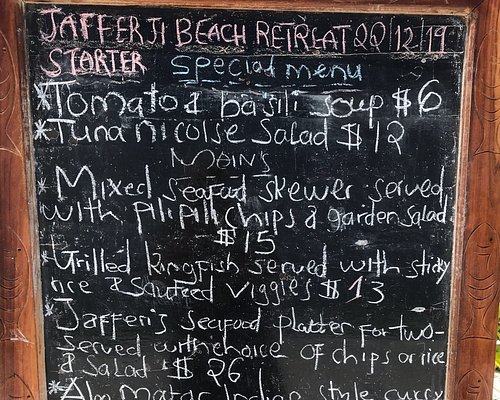 JAFFERJI BEACH RETREAT 20/12/19
STARTER special menu
*Tomato & basili soup $6
*Tuna nicoise Salad $12
MAINS
*Mixed seafood skewer served
with pilipili, chips & garden salad
$15
*Grilled kingfish served with sticky
rice & Sauteed viggies $13
*Jafferis seafood platter for two-
served with choice of chips or rice
& salad $26
*Aloo matar Indian style curry